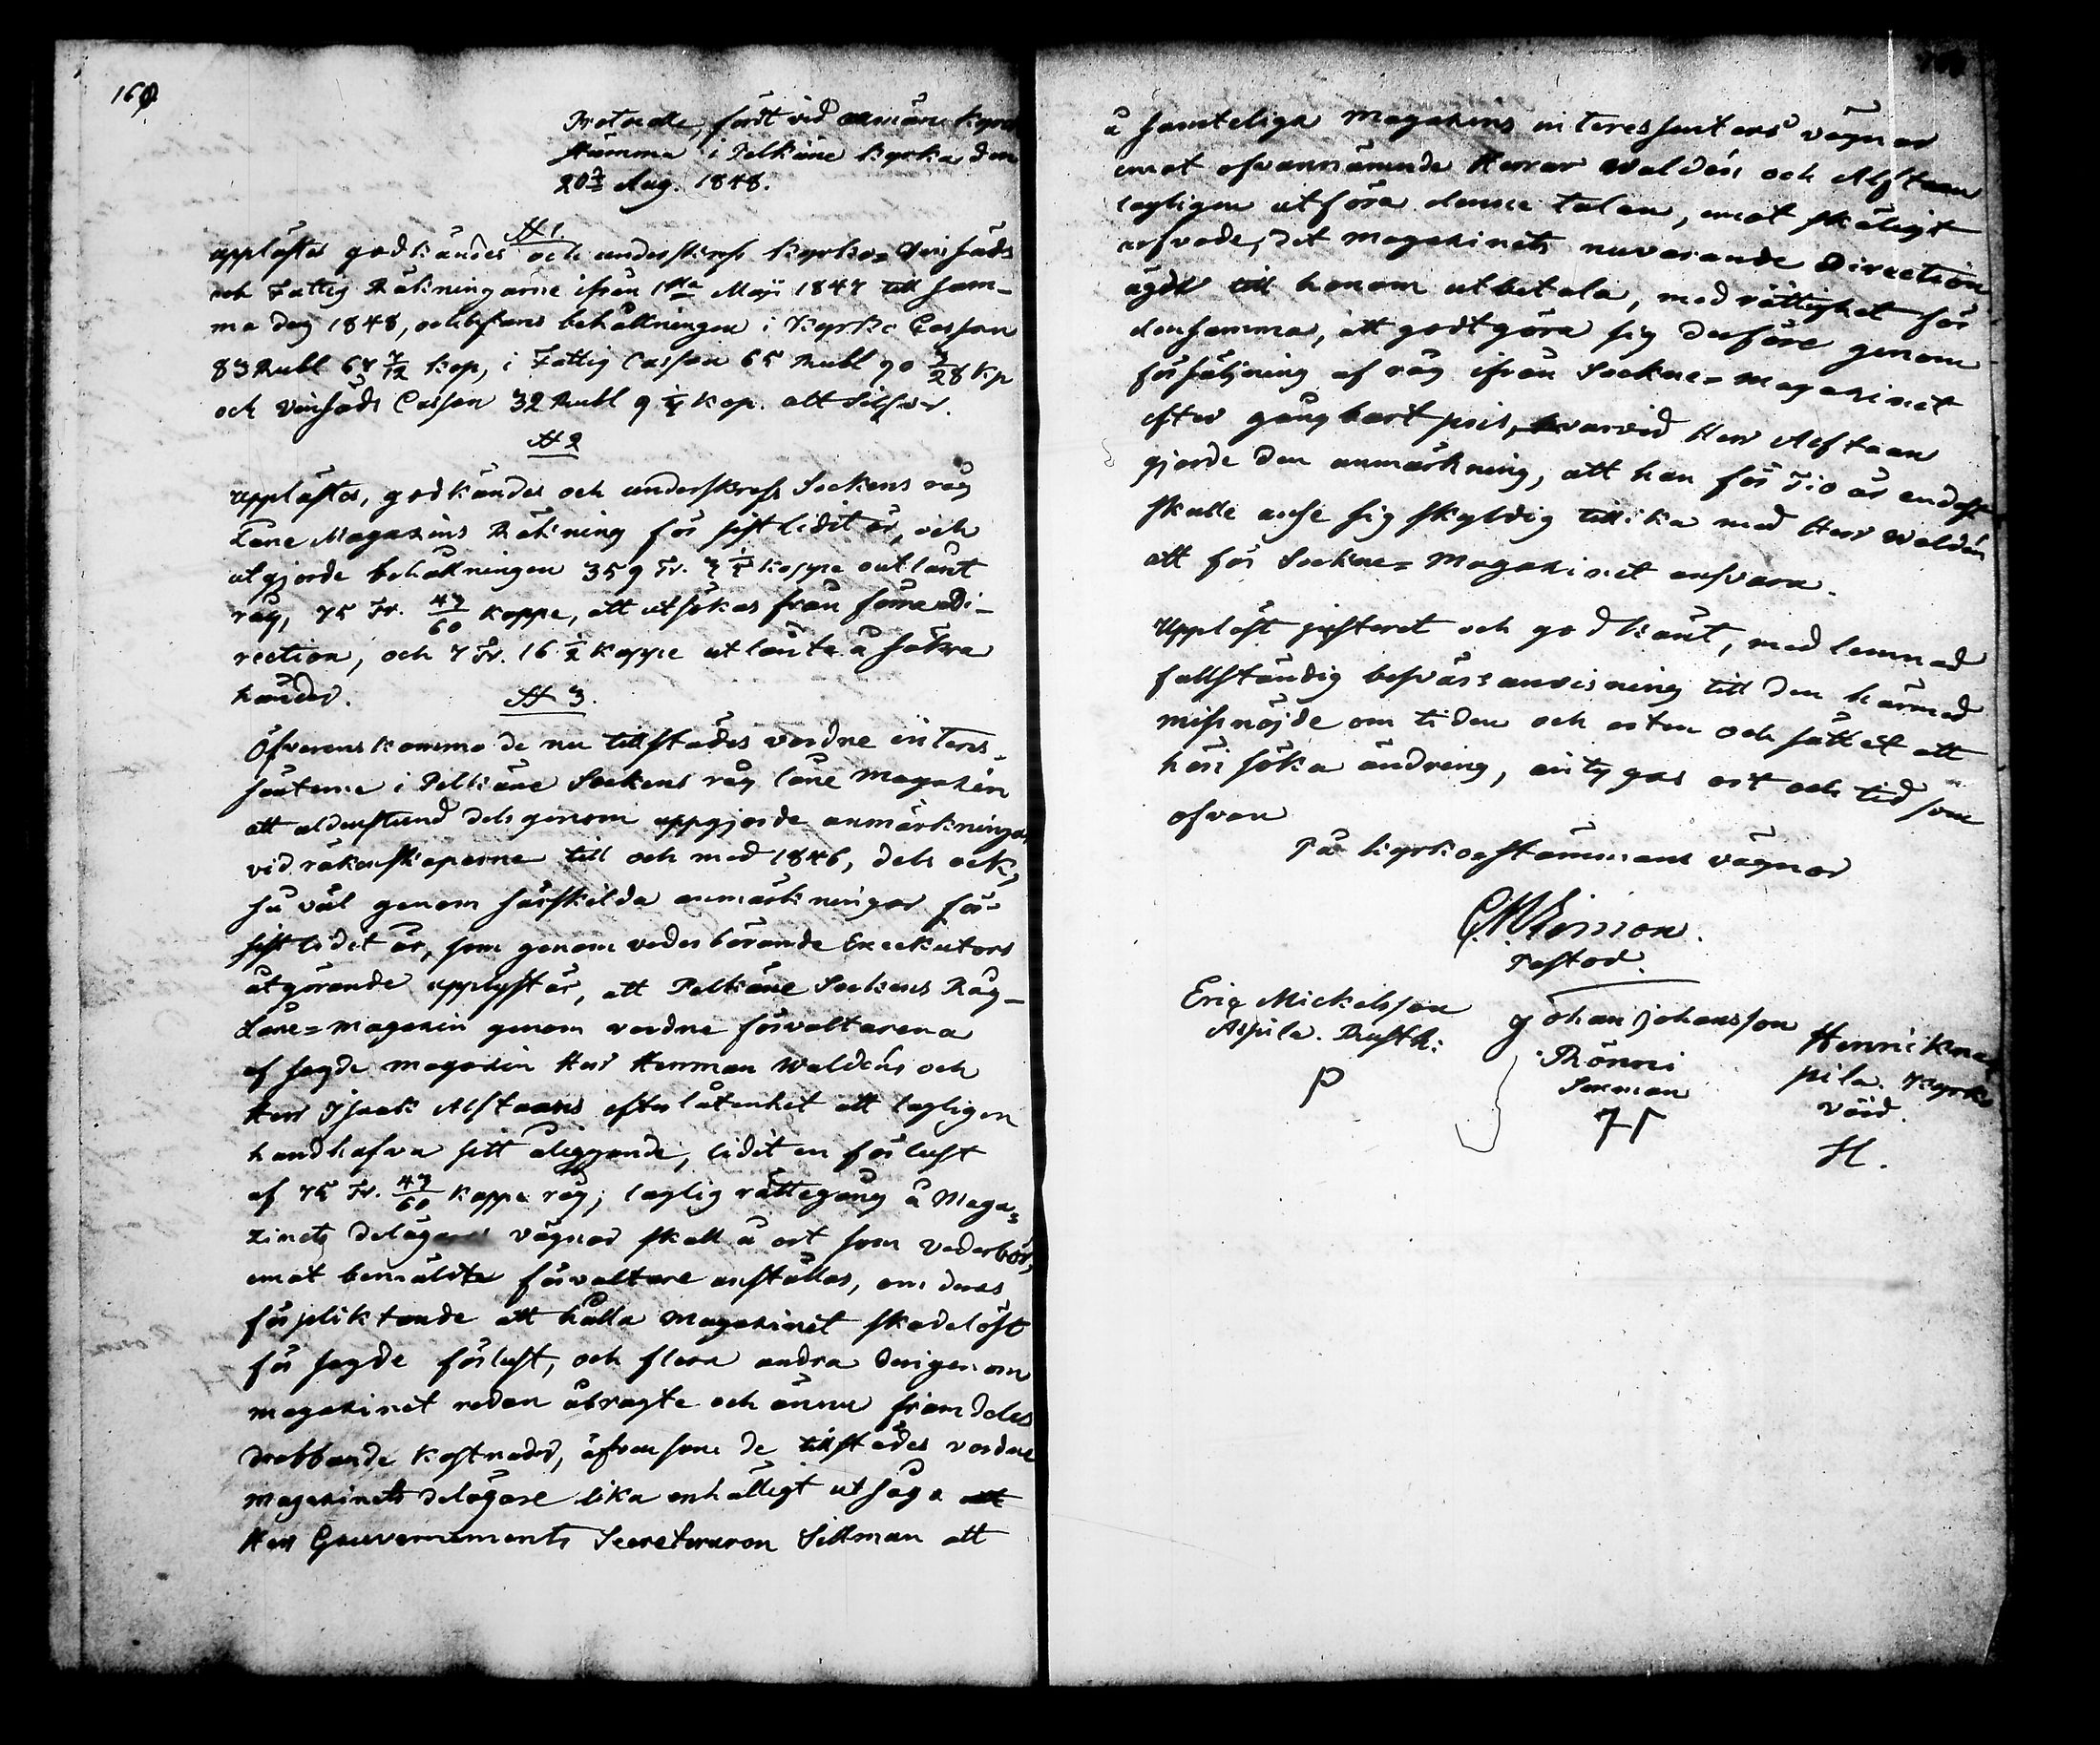 160.
Protocoll, fördt vid allmän Kyrko
stämma i Pelkäne kyrka den
20de Aug. 1848.
N 1.
Upplästes godkändes och underskrefs kyrko= Vinsäds
och Fattig Räkningarne ifrån 1sta Maji 1847 till sam-
ma dag 1848, och befans behållningen i Kyrko Cassan
83 Rubl 67 7/12 kop, i Fattig Cassan 65 Rubl 90 3/28 kp
och Vinsäds Cassan 32 Rubl 9 1/4 kop. allt Silfver.
N 2
Upplästes, godkändes och underskrefs Sockens råg
Låne Magazins Räkning för sistlidit år, och
utgjorde behållningen 359 Tr. 7 1/4 kappe outlånt
råg, 75 Tr. 47/60 kappe, att utsökas från förra Di-
rection, och 7 Tr. 16 1/2 kappe utlånta å säkra
händer.
N 3.
Öfverenskommo de nu tillstädes vordne interes-
senterne i Pelkäne Sockens råg låne magazin
att alldenstund dels genom uppgjorde anmärkningar
vid räkenskaperne till och med 1846, dels ock,
så väl genom särskilda anmärkningar för
sistlidet år, som genom vederbörande Executors
utgörande upplyst är, att Pelkäne Sockens Råg-
Låne=magazin genom vordne förvaltarena
af sagde magazin Herr Herrman Waldéns och
Herr Isaak Alftaans efterlåtenhet att lagligen
handhafva sitt åliggande, lidit en förlust
af 75 Tr. 47/60 kappe råg; laglig rättegång å Maga=
zinets delägares vägnar skall å ort som vederbör,
emot bemälдte förvaltare anställas, om deras
förpliktande att hålla Magazinet skadelöst
för sagde förlust, och flera andra derigenom
magazinet redan åbragte och ännu framdeles
drabbande kostnader, äfvensom de tillstädes vordne
magazinets delägare lika enhälligt utsågo att
Herr Gouvernements Secreteraren Sillman att
å samteliga Magazins interessenters vägnar
emot ofvannämnde Herrar Waldén och Alftaan
lagligen utföra denna talan, emot skäligt
arfvode, det Magazinets nuvarande Direction
ägde till honom utbetala, med rättighet för
densamma, att godtgöra sig derföre genom
försäljning af råg ifrån Sockne=magazinet
efter gångbart pris, hvarvid Herr Alftaan
gjorde den anmärkning, att han för Tio år endast
skulle anse sig skyldig tillika med Herr Waldén
att för Sockne=Magazinet ansvara.
Uppläst justeret och godkänt, med lemnad
fullständig besvärsanvisning till den härmed
missnöjde om tiden och orten och sättet att
häri söka ändring, intygas ort och tid som
ofvan
På kyrkostämmans vägnar
Pastor.
Eriq Mickelsson
Aspila. Rusth:
P
Johan Johansson
Rönni
Sexman
Henrik
pila. Kyrko
värd.
H.